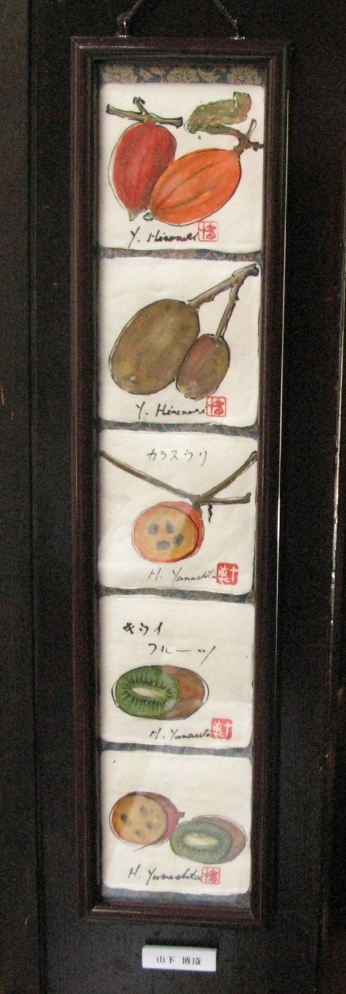 Y. Hironari
Y. Hironari
カラスウリ
H. Yamashita
キウイ
フルーツ
H. Yamashita
H. Yamashita
山下 博成